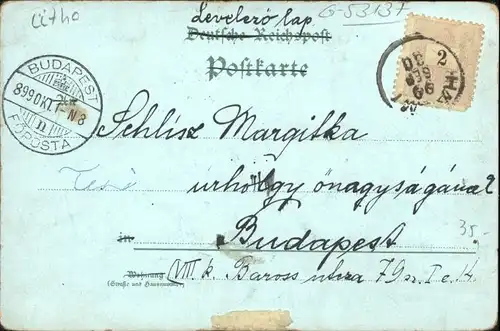 Litho
Levelező lap
G-53137
Deutsche Reichspost
Postkarte
2
BUDAPEST
899 OKT
N8
11
FŐPOSTA
Schlisz Margitka
urhölgy önagyságának
35-
in Budapest
Wohnung VIII. k. Baross utcza 79 sz. I. e. 4
(Straße und Hausnummer)